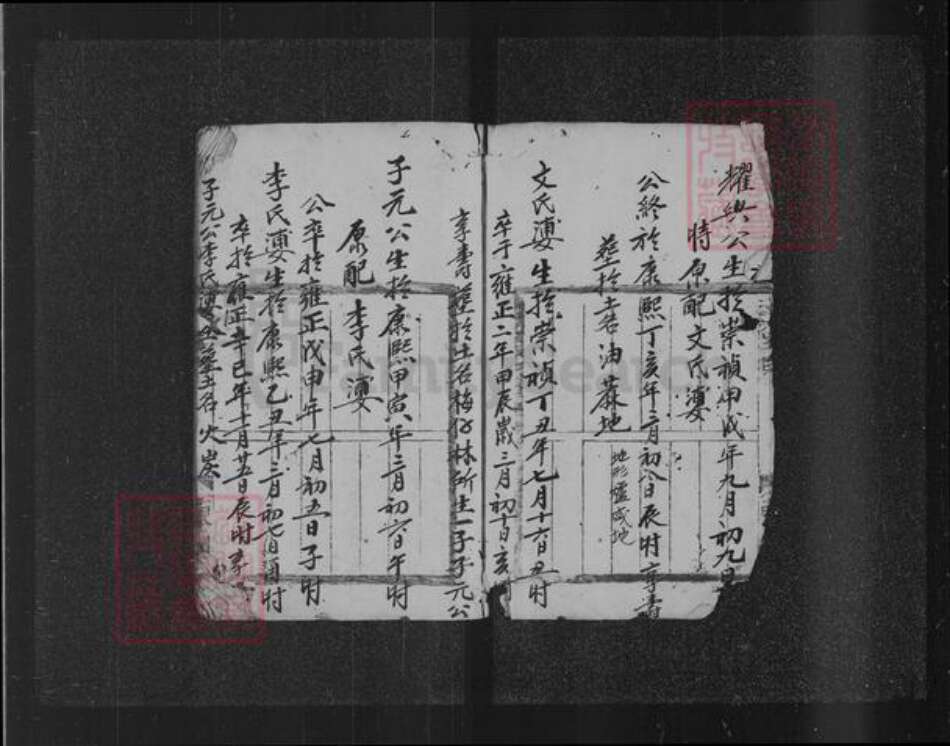 耀公生於崇禎甲戌年九月初九日
時 原配文氏
公終於康熙丁亥年二月初八日辰時享壽
葬於土名油蔴地
地形 地
文氏 生於崇禎丁丑年七月十六日丑時
卒于雍正二年甲辰歲三月初十日亥時
享壽 葬於土名梅仔林所生一子子元公
子元公生於康熙甲寅年三月初六日午時
原配 李氏
公卒於雍正戊申年七月初五日子時
李氏 生於康熙乙丑年三月初七日酉時
卒於雍正辛巳年十二月廿五日辰時享
子元公李氏 仝墓土名火炭